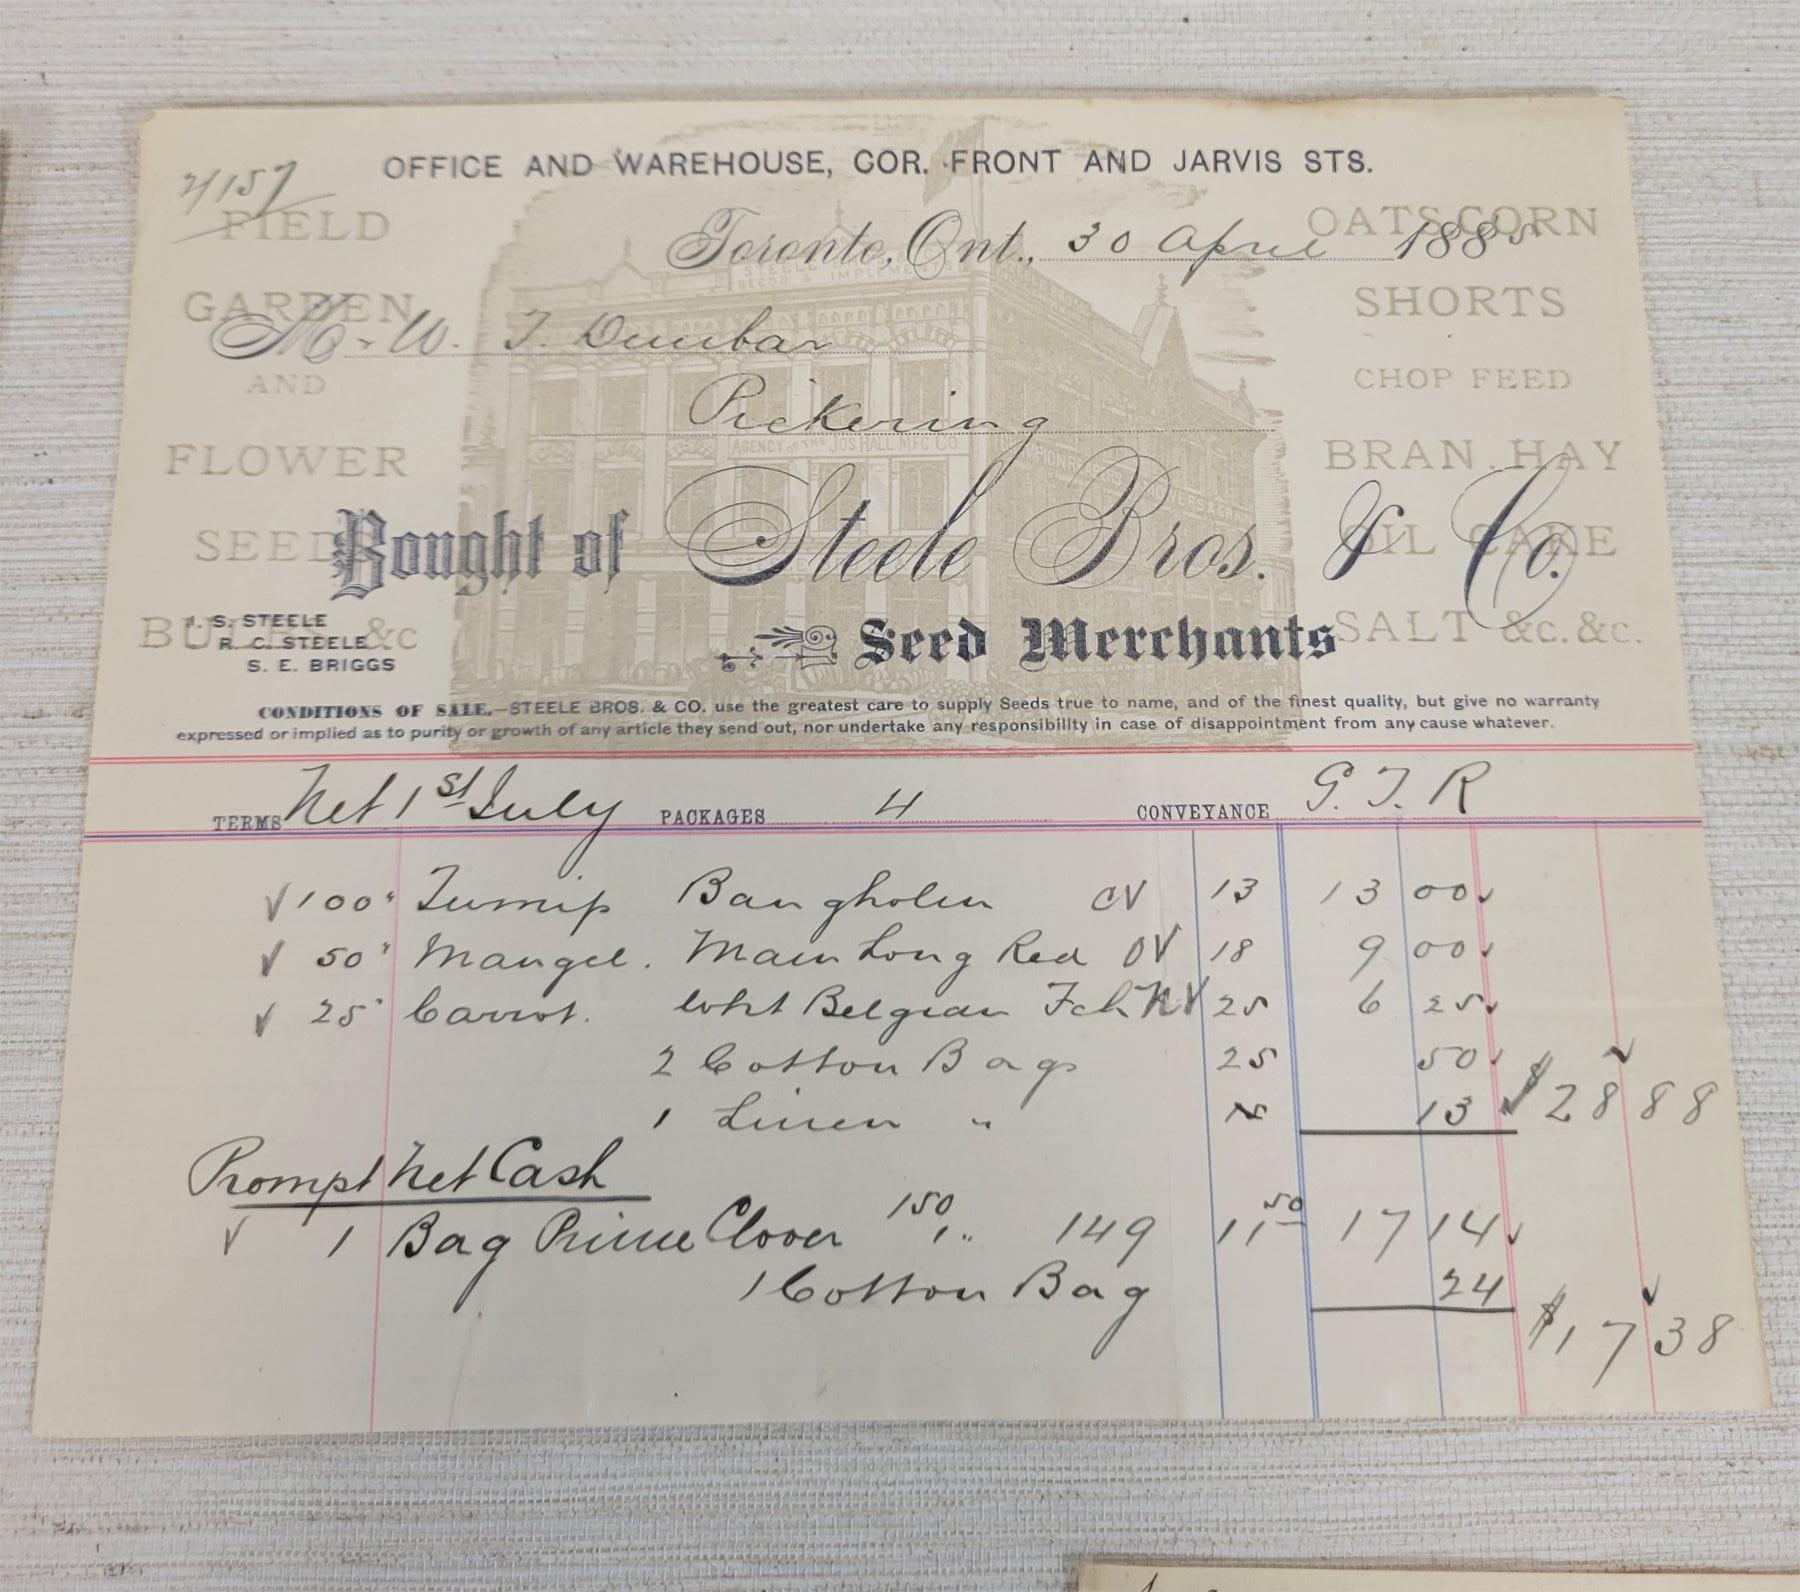 OFFICE AND WAREHOUSE, COR. FRONT AND JARVIS STS.
FIELD
GARDEN
AND
FLOWER
SEEDS
&c
OATS CORN
SHORTS
CHOP FEED
BRAN. HAY
OIL CAKE
SALT &c. &c.
Toronto, Ont., 30 April 1885
M. W. T. Dunbar
Pickering
AGENCY OF THE JOS HALL MFG CO
Bought of Steele Bros. & Co.
J. S. STEELE
R. C. STEELE
S. E. BRIGGS
Seed Merchants
CONDITIONS OF SALE.—STEELE BROS. & CO. use the greatest care to supply Seeds true to name, and of the finest quality, but give no warranty
expressed or implied as to purity or growth of any article they send out, nor undertake any responsibility in case of disappointment from any cause whatever.
TERMS Net 1st July PACKAGES 4 CONVEYANCE G. T. R
100 Turnip Bangholm 13 13 00
50 Mangel. Mam Long Red 18 9 00
25 Carrot. Wht Belgian 25 6 25
2 Cotton Bags 25 50
1 Linen " 13 $28 88
Prompt Net Cash
1 Bag Prime Clover 150 149 11 50 17 14
1 Cotton Bag 24
$17 38